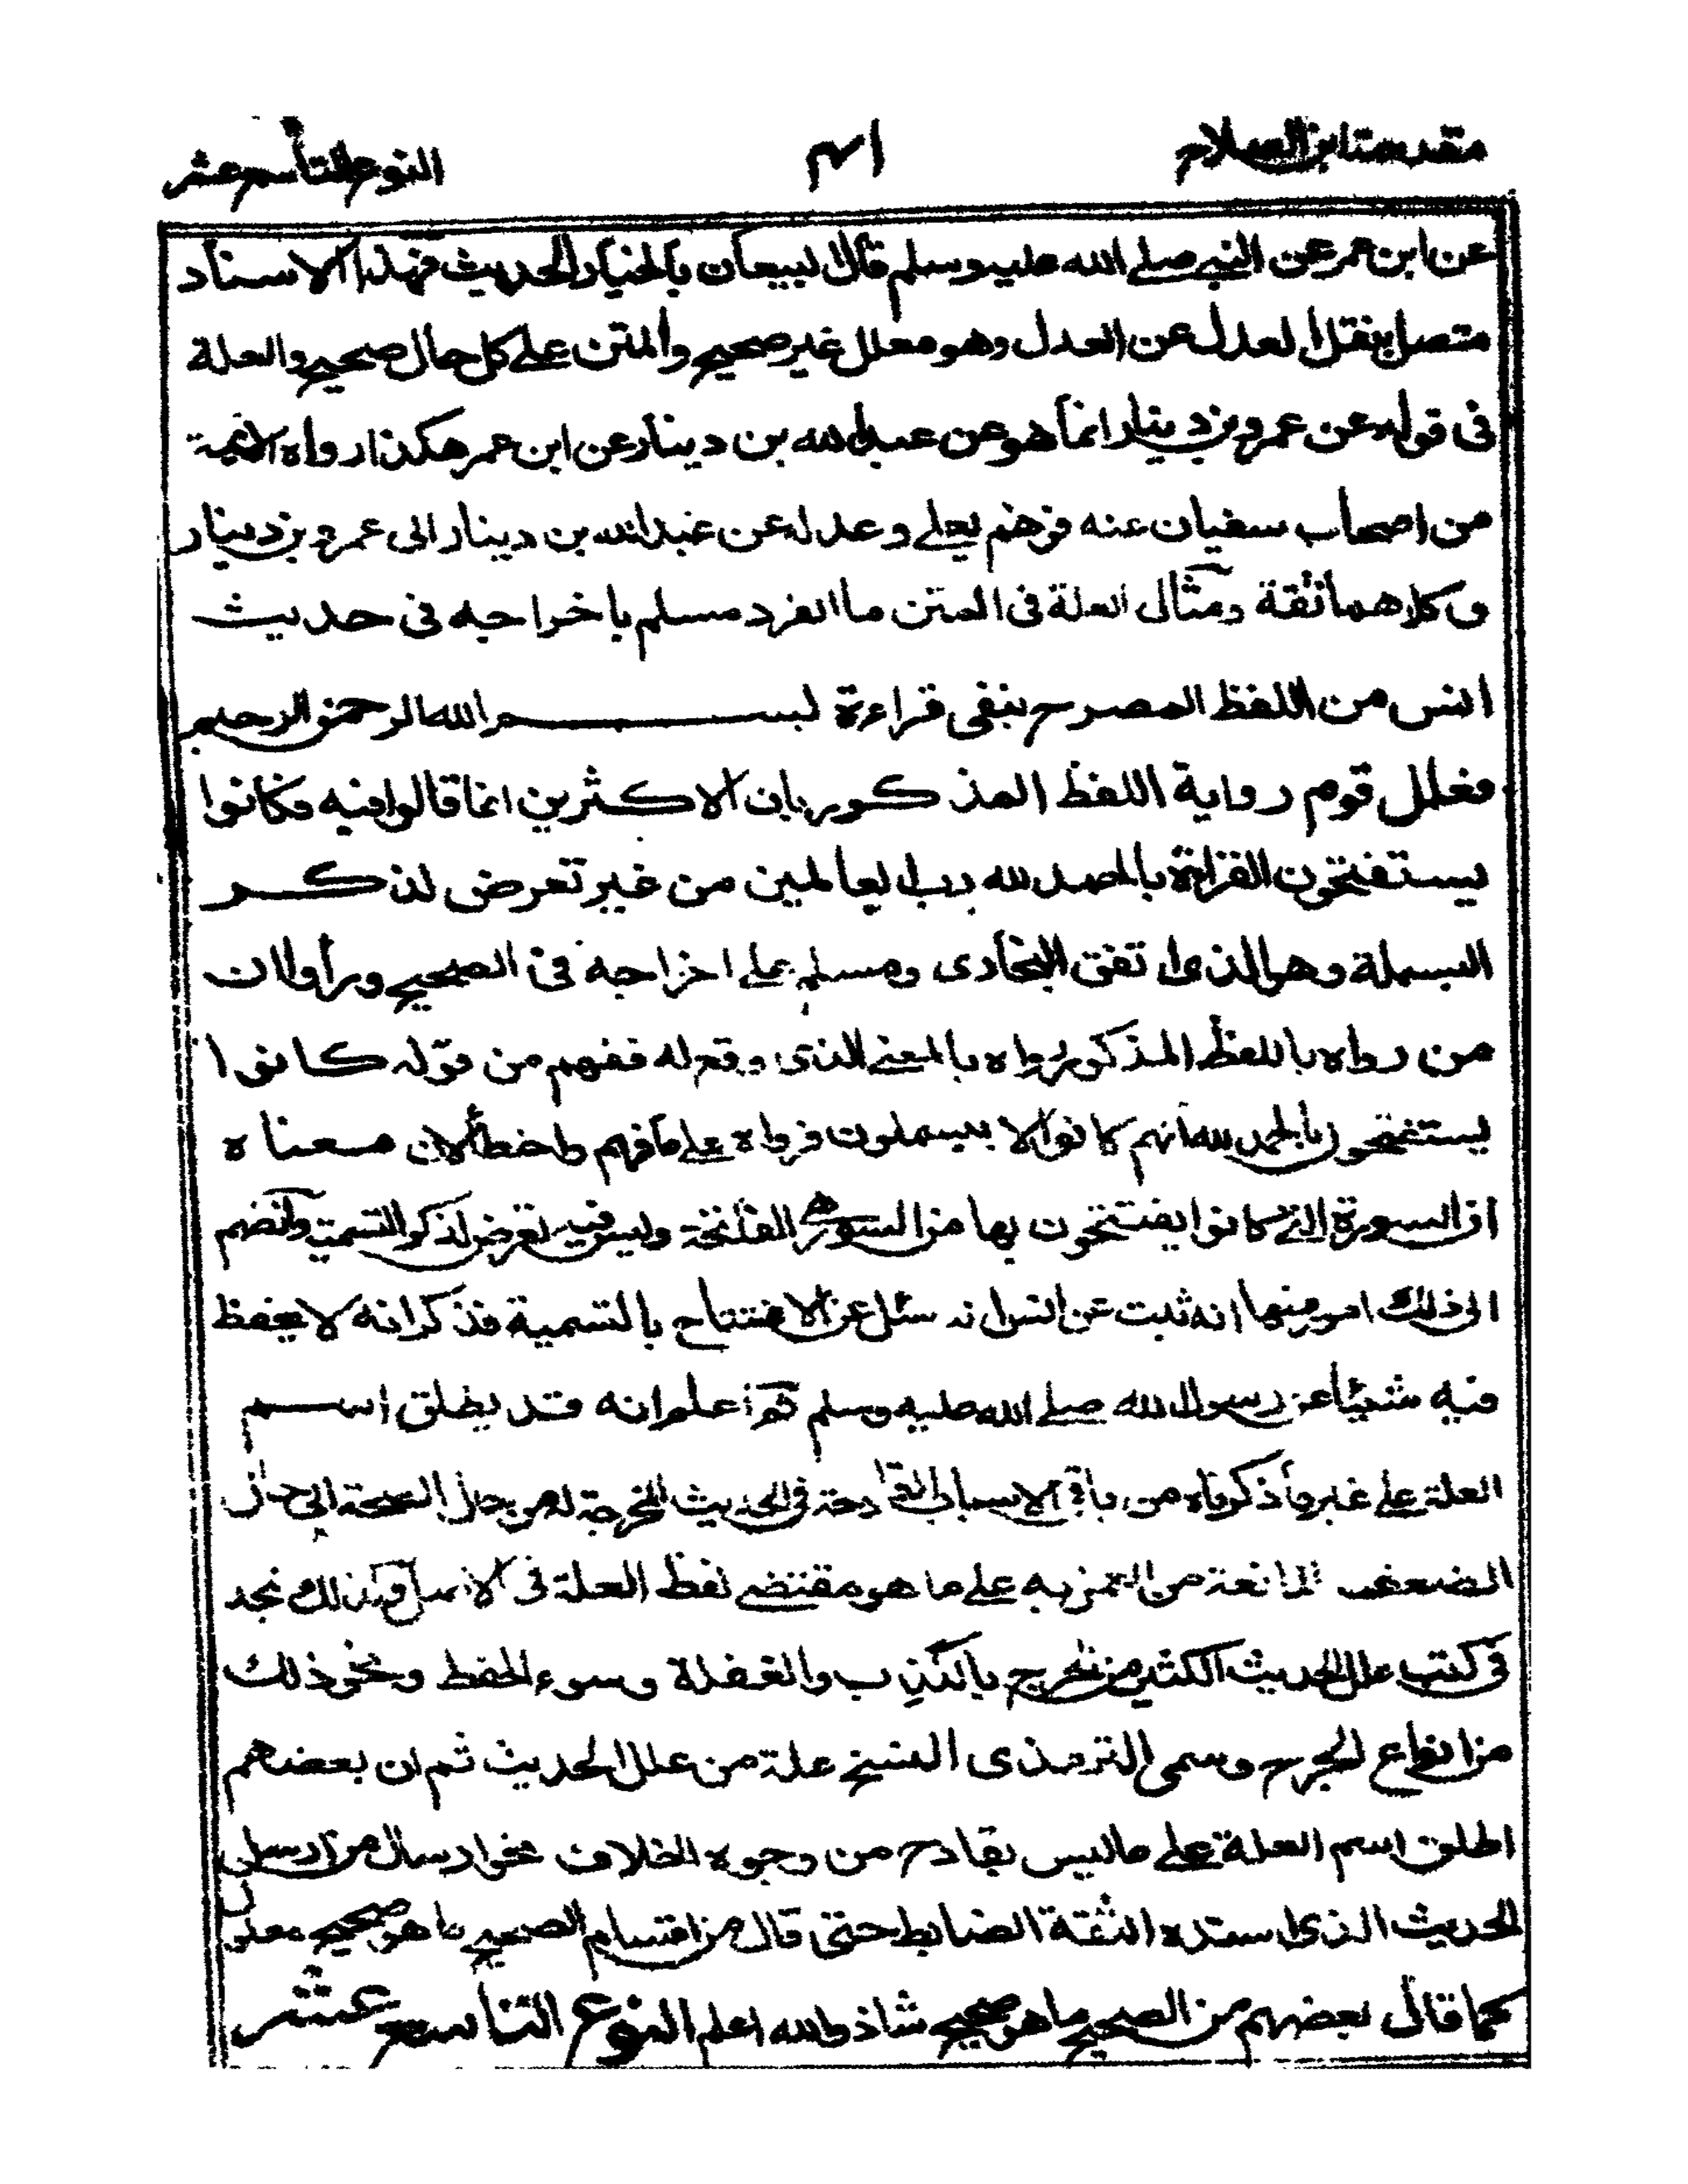 مقدمة ابن الصلاح
النوع التاسع عشر
عن ابن عمر عن النبي صلے الله عليه وسلم قال البيعان بالخيار الحديث فهذا الاسناد
متصل بنقل العدل عن العدل وهو معلل غير صحيح والمتن علے كل حال صحيح والعلة
فى قوله عن عمرو بن دينار انما هو عن عبد الله بن دينار عن ابن عمر هكذا رواه الائمة
من اصحاب سفيان عنه فوهم يعلے وعدل عن عبد الله بن دينار الى عمرو بن دينار
وكلاهما ثقة ومثال العلة فى المتن ما انفرد مسلم باخراجه فى حديث
انس من اللفظ المصرح بنفى قراءة بسم الله الرحمن الرحيم
فعلل قوم رواية اللفظ المذكور بان الاكثرين انما قالوا فيه فكانوا
يستفتحون القراءة بالحمد لله رب العالمين من غير تعرض لذكر
البسملة وهو الذى اتفق البخارى ومسلم علے اخراجه فى الصحيح ورأوا ان
من رواه باللفظ المذكور رواه بالمعنے الذى وقع له ففهم من قوله كانوا
يستفتحون بالحمد لله انهم كانوا لا يبسملون فرواه علے ما فهم واخطأ لان معناه
ان السورة التے كانوا يفتتحون بها من السور هے الفاتحة وليس فيه تعرض لذكر التسمية وانضم
الى ذلك امور منها انه ثبت عن انس انه سئل عن الافتتاح بالتسمية فذكر انه لا يحفظ
فيه شيئا عن رسول الله صلے الله عليه وسلم ثم اعلم انه قد يطلق اسم
العلة علے غير ما ذكرناه من باقى الاسباب القادحة فى الحديث المخرجة له من حال الصحة الى حال
الضعف المانعة من العمل به علے ما هو مقتضے لفظ العلة فى الاصل ولذلك نجد
فى كتب علل الحديث الكثير من الجرح بالكذب والغفلة وسوء الحفظ ونحو ذلك
من انواع الجرح وسمى الترمذى النسخ علة من علل الحديث ثم ان بعضهم
اطلق اسم العلة علے ما ليس بقادح من وجوه الخلاف نحو ارسال من ارسل
الحديث الذى اسنده الثقة الضابط حتى قال من اقسام الصحيح ما هو صحيح معلول
كما قال بعضهم من الصحيح ما هو صحيح شاذ والله اعلم النوع التاسع عشر